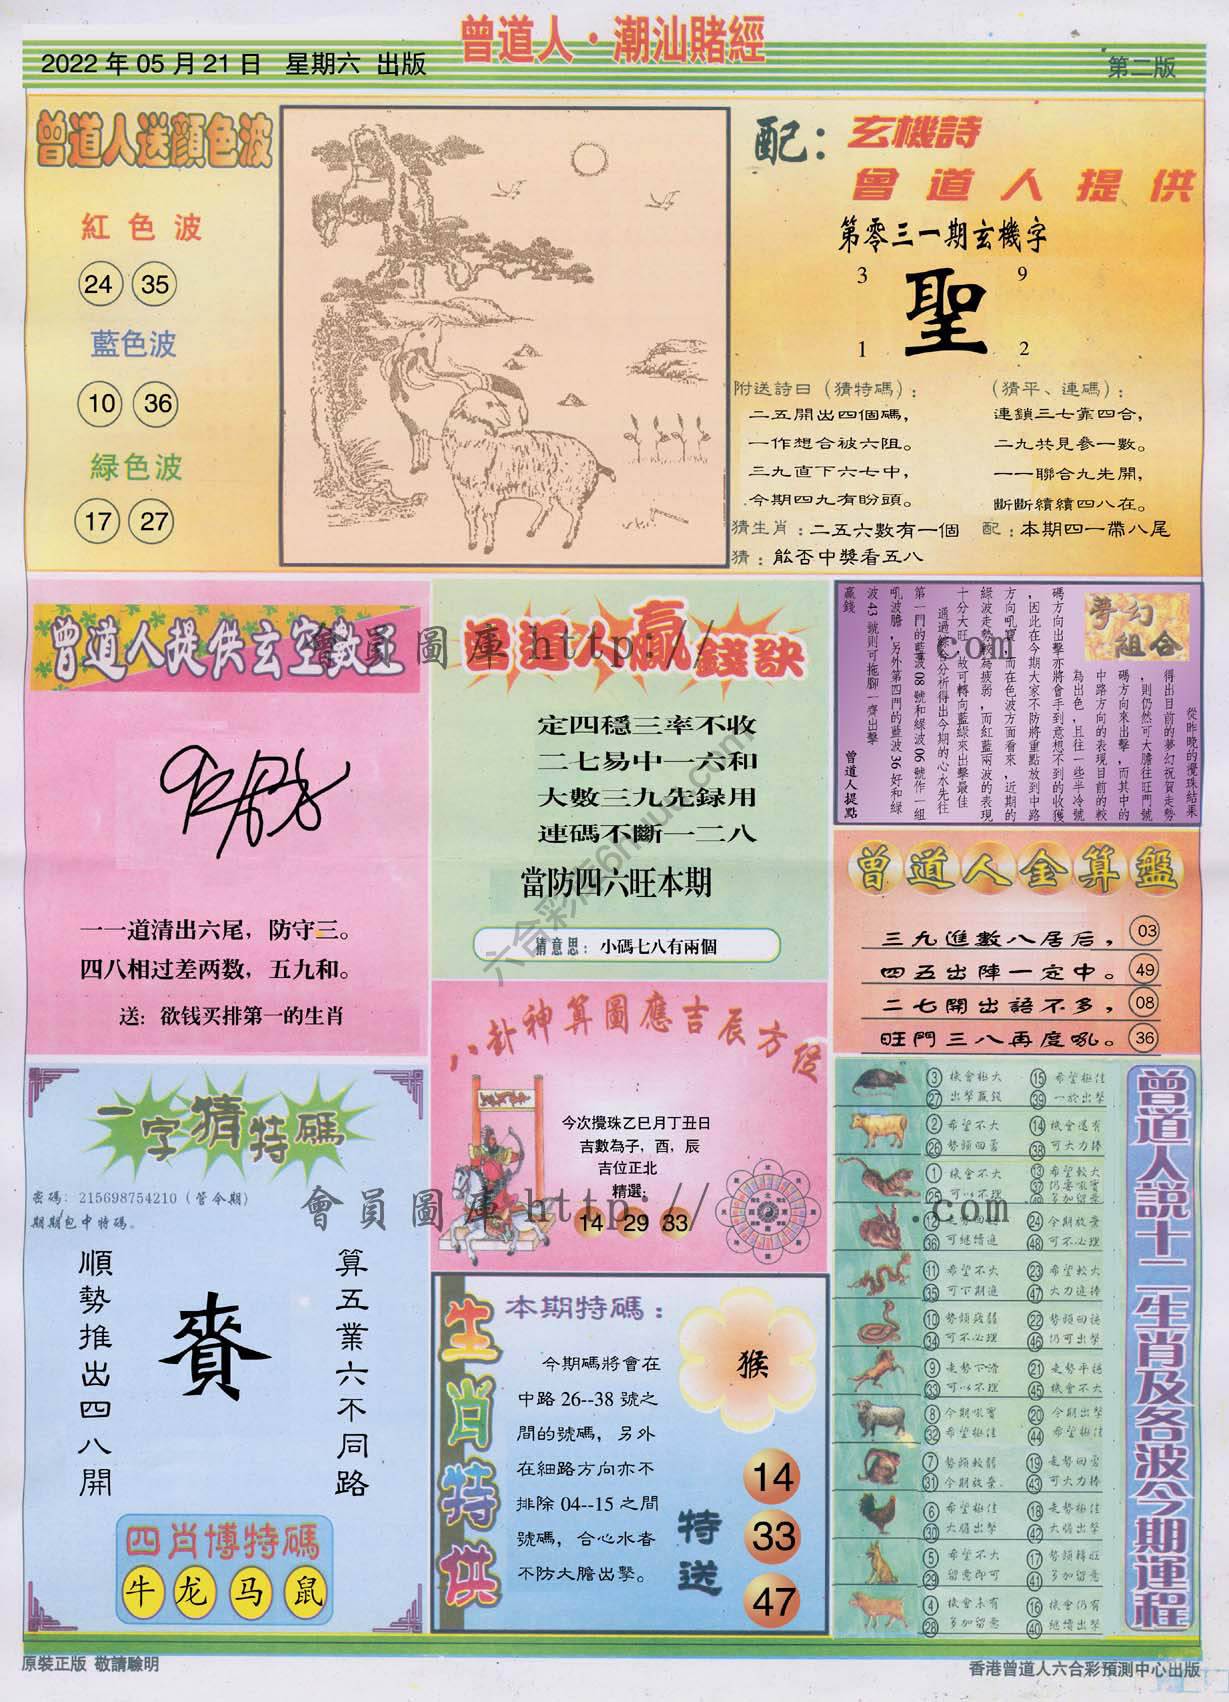 曾道人·潮汕賭經
2022 年 05 月 21 日 星期六 出版
第二版
曾道人送顏色波
紅色波
24 35
藍色波
10 36
緑色波
17 27
配：
玄機詩
曾道人提供
第零三一期玄機字
3 9
聖
1 2
附送詩曰（猜特碼）：
二五開出四個碼，
一作想合被六阻。
三九直下六七中，
今期四九有盼頭。
（猜平、連碼）：
連鎖三七靠四合，
二九共見參一數。
一一聯合九先開，
斷斷續續四八在。
猜生肖：二五六數有一個
配：本期四一帶八尾
猜：能否中獎看五八
曾道人提供玄空數
一一道清出六尾，防守三。
四八相过差两数，五九和。
送：欲钱买排第一的生肖
曾道人贏錢訣
定四穩三率不收
二七易中一六和
大數三九先録用
連碼不斷一二八
當防四六旺本期
猜意思：小碼七八有兩個
夢幻
組合
從昨晚的攪珠結果
得出目前的夢幻祝賀走勢
，則仍然可大膽往旺門號
碼方向來出擊，而其中的
中路方向的表現目前的較
為出色，且往一些半冷號
碼方向出擊亦將會手到意想不到的收獲
，因此在今期大家不防將重點放到中路
方向吼寶，而在色波方面看來，近期的
綠波走勢較為疲弱，而紅藍兩波的表現
十分大旺，故可轉向藍綠來出擊最佳
通過綜合分析得出今期的心水先往
第一門的藍波 08 號和綠波 06 號作一組
吼波膽，另外第四門的藍波 36 好和綠
波 43 號則可拖腳一齊出擊
贏錢
曾道人提點
曾道人金算盤
三九進數八居后， 03
四五出陣一定中。 49
二七開出語不多， 08
旺門三八再度吼。 36
一字猜特碼
密碼：215698754210（管今期）
期期包中特碼。
算五業六不同路
賚
順勢推出四八開
四肖博特碼
牛 龙 马 鼠
八卦神算圖應吉辰方位
今次攪珠乙巳月丁丑日
吉數為子，酉，辰
吉位正北
精選：
14 29 33
生肖特供
本期特碼：
猴
今期碼將會在
中路 26--38 號之
間的號碼，另外
在細路方向亦不
排除 04--15 之間
號碼，合心水者
不防大膽出擊。
特送
14
33
47
曾道人説十二生肖及各波今期運程
3 機會極大 15 希望極佳
27 出擊贏錢 39 一於出擊
2 希望不大 14 機會還有
26 勢頭回勇 38 可大力捧
1 機會不大 13 希望較大
25 可以不理 37 仍要吼實
多加留意
12 走勢回穩 24 今期放棄
36 可繼續進 48 可不必理
11 希望不大 23 希望較大
35 可下期進 47 大力進捧
10 勢頭疲弱 22 勢頭回穩
34 可不必理 46 仍可出擊
9 走勢下滑 21 走勢平穩
33 可以不理 45 機會不大
8 今期吼實 20 今期出擊
32 希望極佳 44 希望極佳
7 勢頭較弱 19 走勢回勇
31 今期放棄 43 可大力捧
6 希望極佳 18 走勢極佳
30 大膽出擊 42 大膽出擊
5 希望不大 17 勢頭轉旺
29 留意即可 41 多加留意
4 機會未有 16 機會仍有
28 多加留意 40 繼續出擊
會員圖庫 http:// .com
會員圖庫 http:// .com
原裝正版 敬請驗明
香港曾道人六合彩預測中心出版